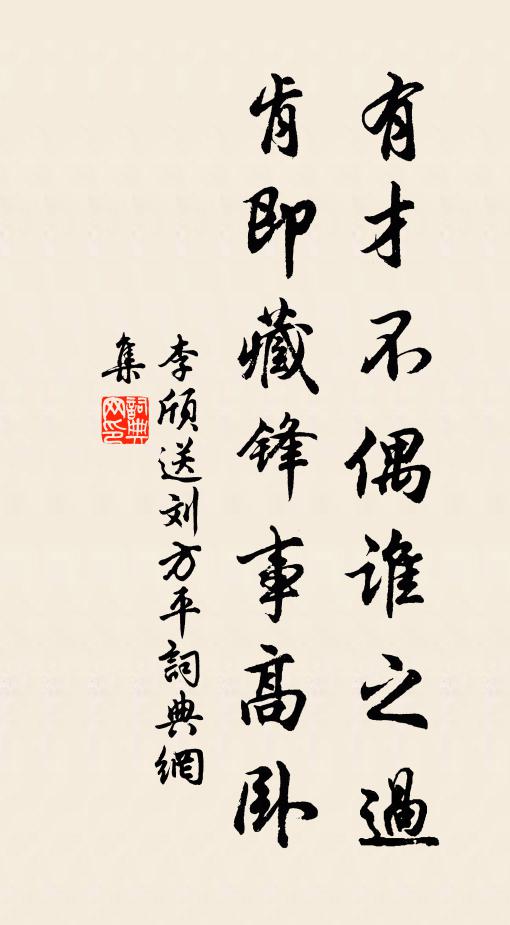 有才不偶谁之過
肯即藏锋事高卧
李頎送刘方平詞典網
集
詞典网印